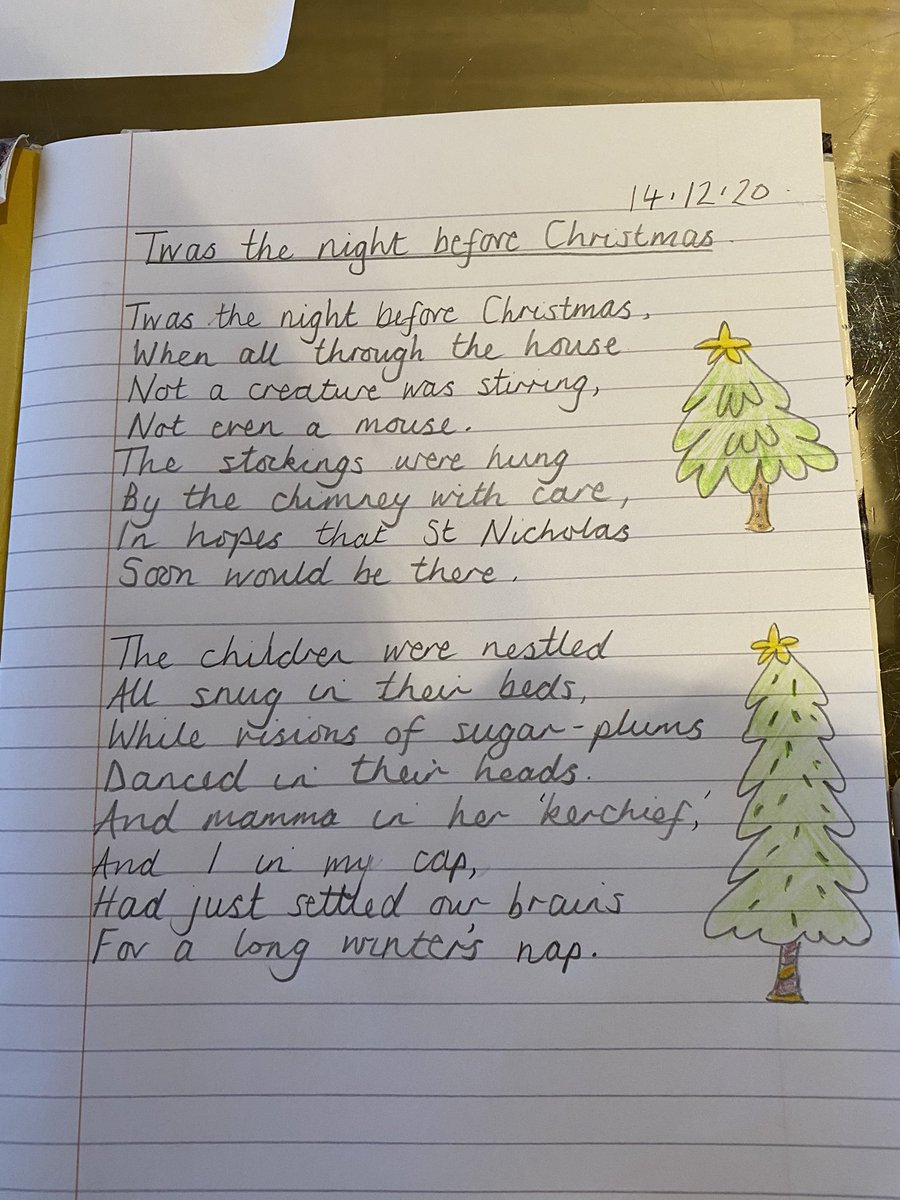 14.12.20.
Twas the night before Christmas.
Twas the night before Christmas,
When all through the house
Not a creature was stirring,
Not even a mouse.
The stockings were hung
By the chimney with care,
In hopes that St Nicholas
Soon would be there.
The children were nestled
All snug in their beds,
While visions of sugar-plums
Danced in their heads.
And mamma in her 'kerchief,'
And I in my cap,
Had just settled our brains
For a long winter's nap.